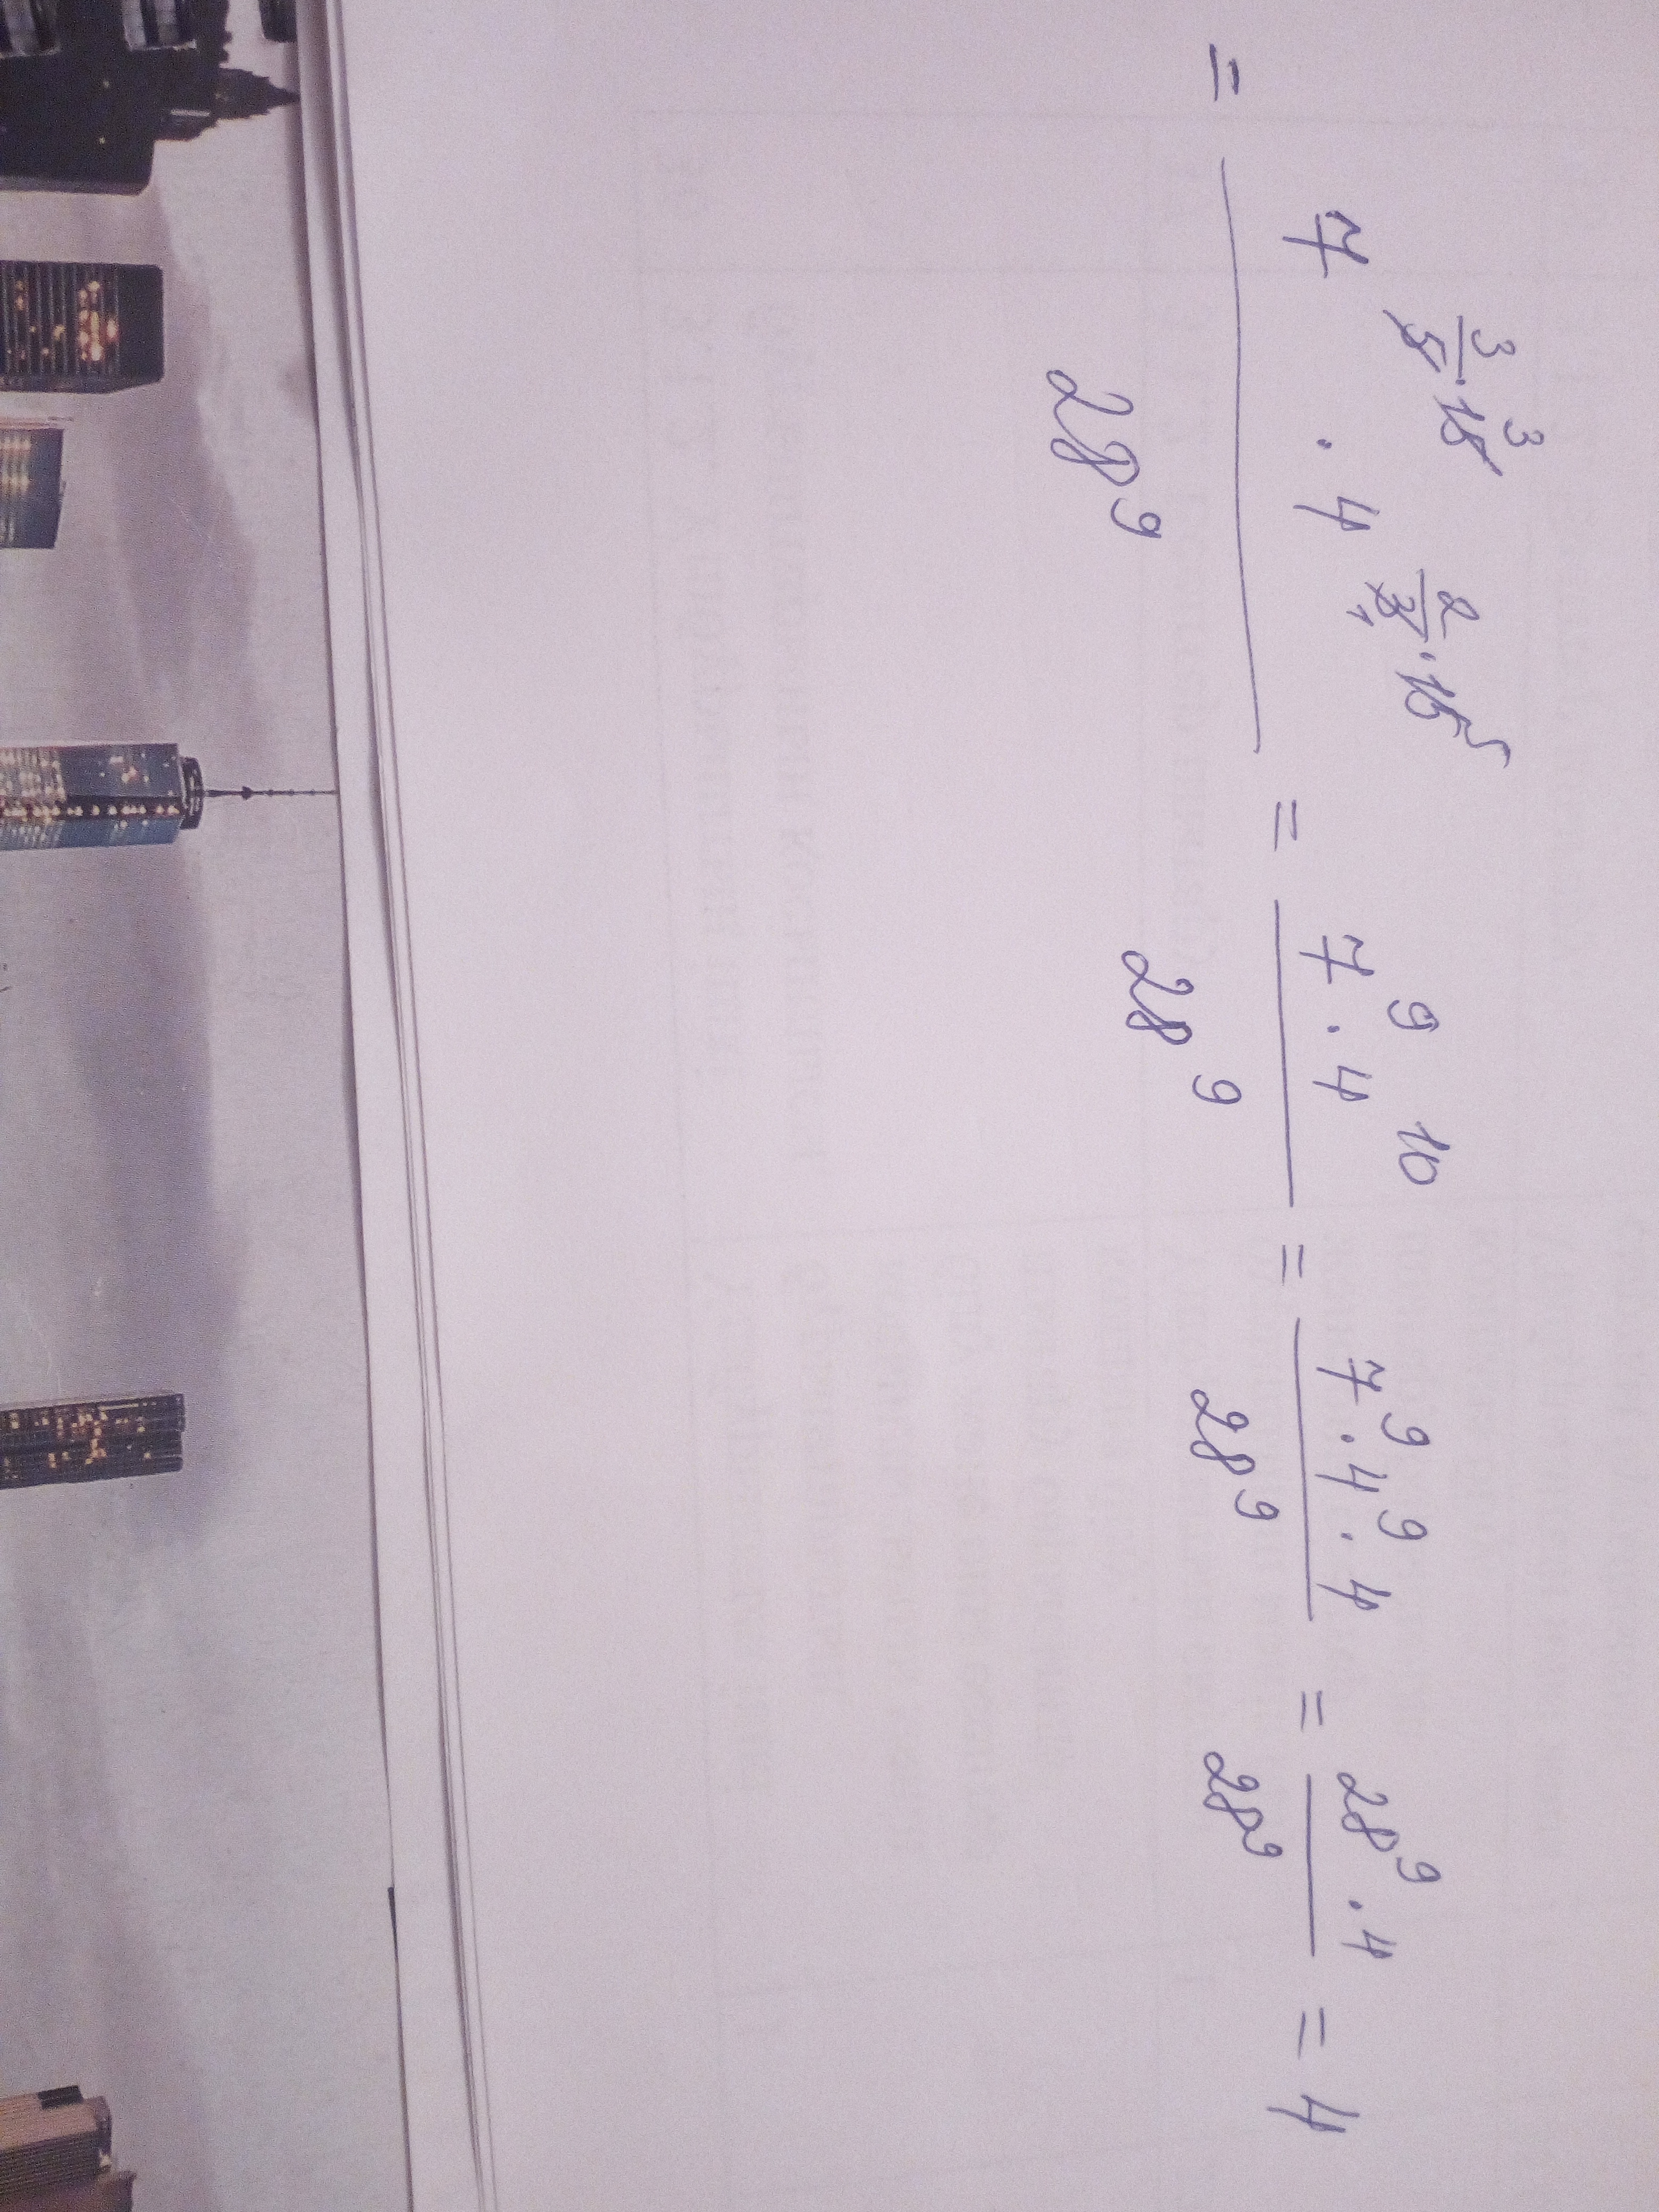 = \frac{7^{\frac{3}{5} \cdot 15^{3}} \cdot 4^{\frac{2}{3_{1}} \cdot 15^{5}}}{28^{9}} = \frac{7^{9} \cdot 4^{10}}{28^{9}} = \frac{7^{9} \cdot 4^{9} \cdot 4}{28^{9}} = \frac{28^{9} \cdot 4}{28^{9}} = 4